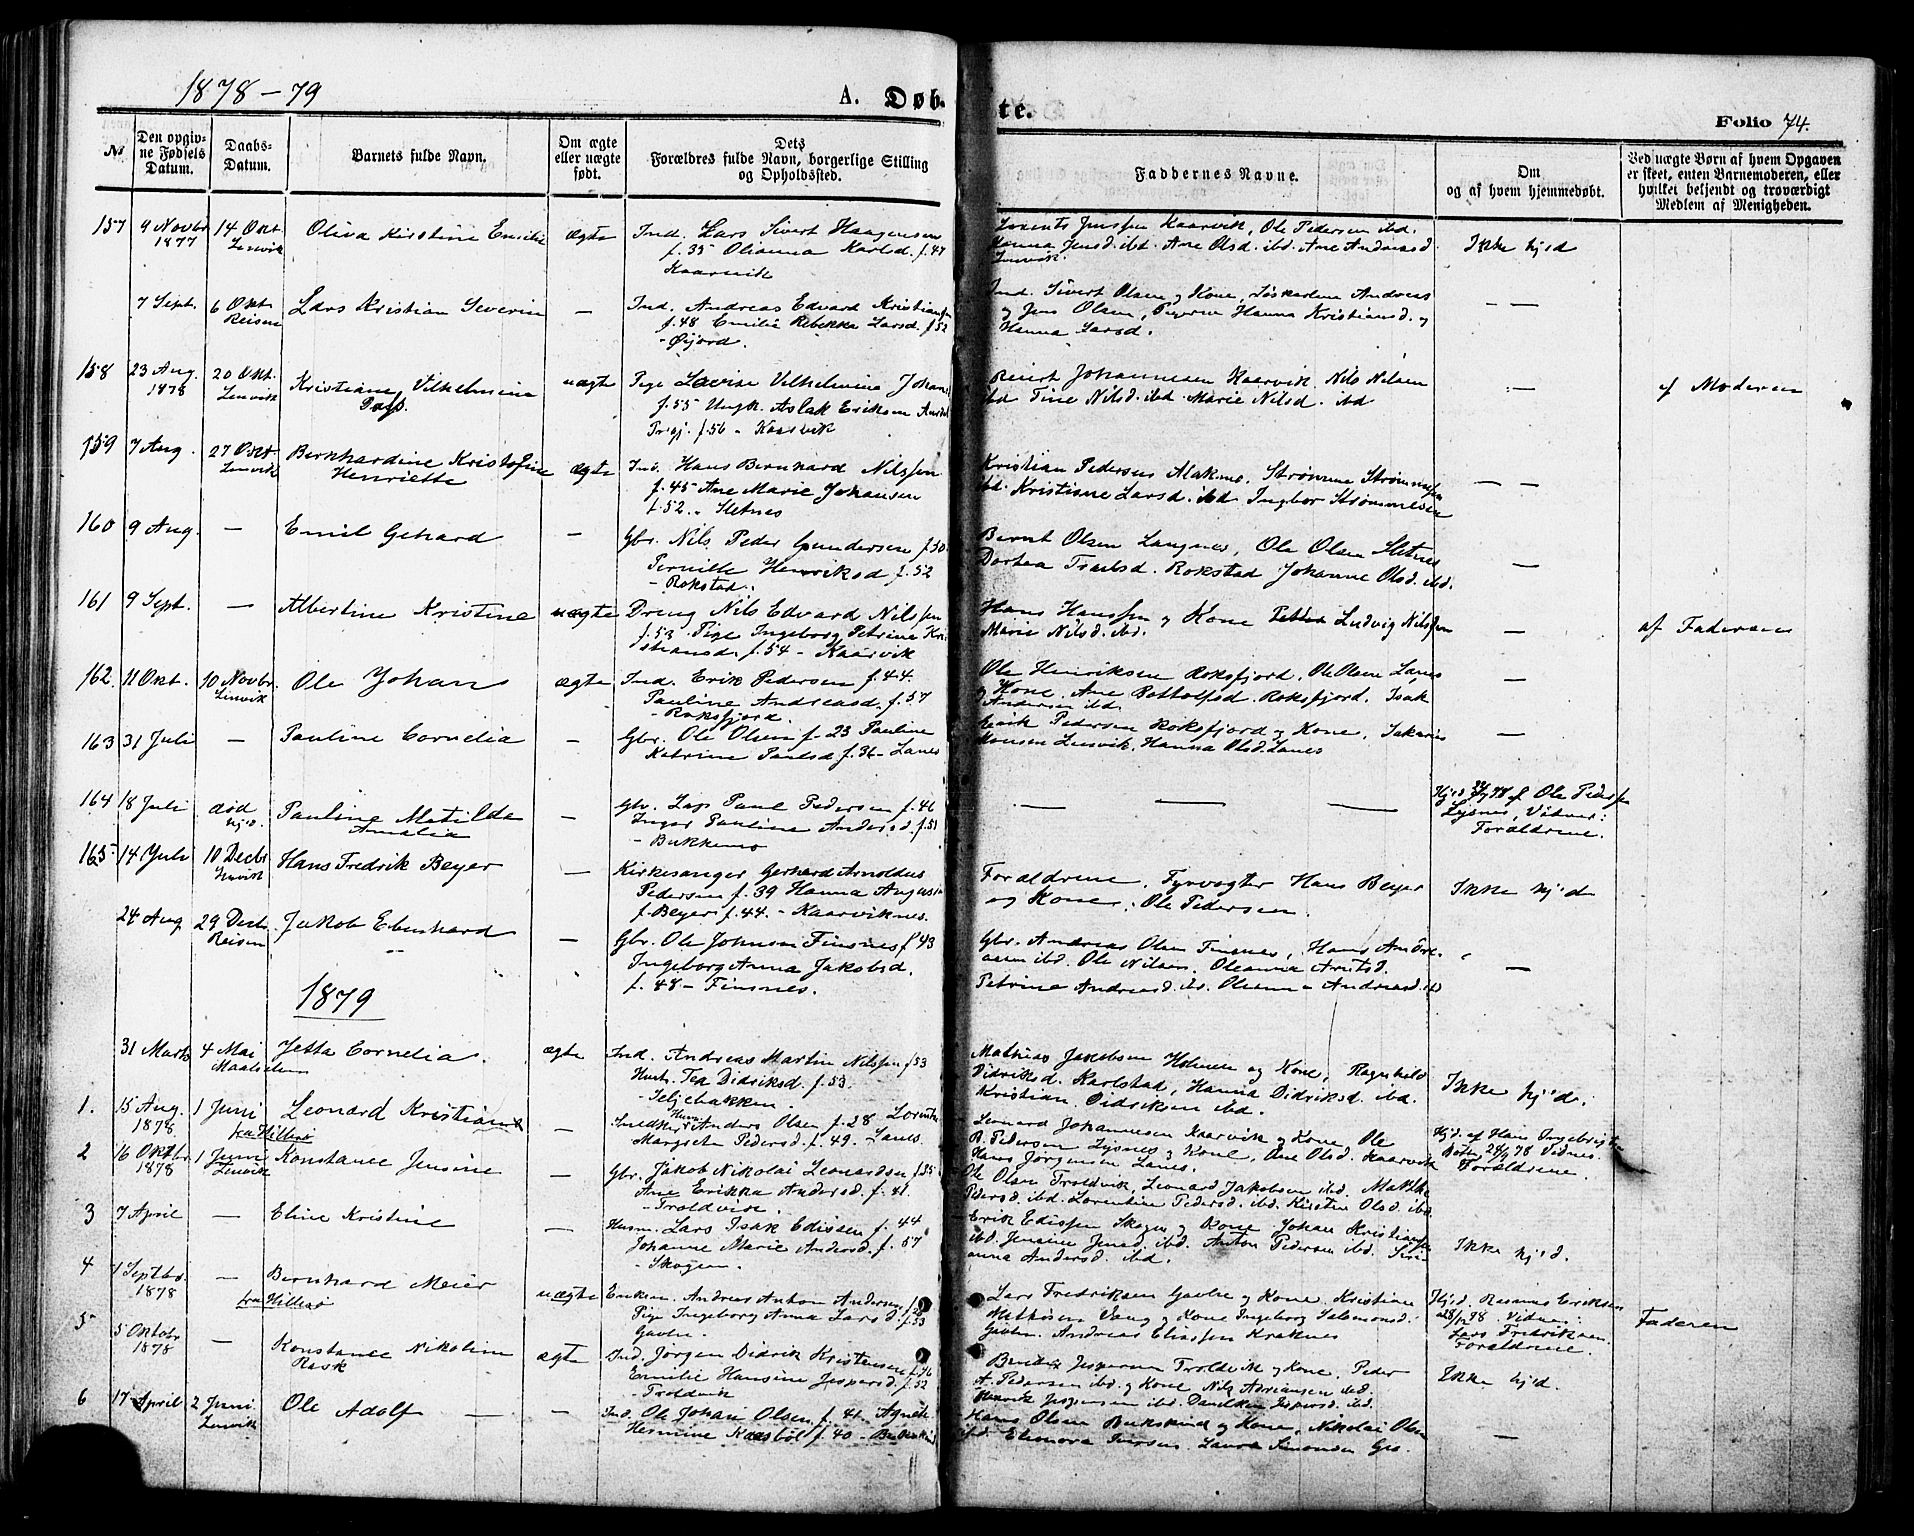 1878-79
A. Døb-
te.
Folio 74.
№
Den opgiv-
ne Fødsels
Datum.
Daabs-
Datum.
Barnets fulde Navn.
Om ægte
eller uægte
født.
Dets
Forældres fulde Navn, borgerlige Stilling
og Opholdssted.
Faddernes Navne.
Om
og af hvem hjemmedøbt.
Ved uægte Børn af hvem Opgaven
er skeet, enten Barnemoderen, eller
hvilket bekjendt og troværdigt
Medlem af Menigheden.
157 9 Novbr 14 Okt Oliva Kirstine Emilie ægte Ind. Lars Sivert Haagensen Lorents Jenssen Kaarvik, Ole Pedersen ibd.
1877 Lenvik f. 35 Olianna Karlsd. f. 47 Hanna Jensd. ibd. Ane Olsd. ibd. Ane Andreasd. Ikke hj.d
Kaarvik Lenvik.
7 Sept. 6 Okt Lars Kristian Severin — Ind. Andreas Edvard Kristiansen Ind. Sivert Olsen og Kone, Andreas — —
Reisen f. 48 Emilie Rebekka Larsd. f. 52 og Jens Olsen, Pigerne Hanna Kristiansd. og
- Øijord. Hanna Larsd.
158 23 Aug. 20 Okt. Kristiane Vilhelmina uægte Pige Lovise Vilhelmina Johans Johannesen Kaarvik. Nils Nilsen — af Moderen
1878 Lenvik f. 55 Ungk. Aslak Eriksen ibd Tine Nilsd. ibd. Marie Nilsd. ibd
f. 56 - Kaarvik
159 7 Aug. 27 Okt. Bernhardine Kristofine ægte Ind. Hans Bernhard Nilssen Kristian Pedersen Strømme Strømmesen — —
Lenvik Henriette f. 45 Ane Marie Johansen ibd. Kristine Larsd. ibd Ingbor Strømmesen
f. 52. - Sletnes
160 9 Aug. — Emil Gehard — Gbr. Nils Peder Gundersen f. 30 Bernt Olsen Langnes, Ole Olsen Sletnes —
Pernille Henriksd f. 52 Dortea Rokstad Johanne Olsd. ibd.
- Rokstad.
161 9 Sept. — Albertine Kristine uægte Dreng Nils Edvard Nilssen Hans Hanssen og Kone Ludvig Nilssen — af Faderen
f. 53 Pige Ingeborg Petrine Kri Marie Nilsd. ibd.
stiansd. f. 54 - Kaarvik
162. 11 Okt. 10 Novbr. Ole Johan ægte Ind. Erik Pedersen f. 44. Ole Henriksen Roksfjord, Ole Olsen Lanes —
Lenvik Pauline Andreasd. f. 57 og Kone. Ane Roksfjord. Isak
- Roksfjord. Andersen ibd.
163 31 Juli — Pauline Cornelia — Gbr. Ole Olsen f. 23 Pauline Erik Pedersen Roksfjord og Kone, —
Katrine Paulsd f. 36 - Lanes Lenvik, Hanna Olsd. Lanes
164 18 Juli død Pauline Matilde — Gbr. Lap Paul Pedersen f. 46 — — — Hj.d 78 af Ole Peders.
hj.d. Amalia Inger Pauline Andersd. f. 51 Lysnes, Vidner:
- Bukkemo Forældrene.
165 14 Juli 10 Decbr Hans Fredrik Beyer — Kirkesanger Gerhard Arnoldus Forældrene, Fyrvogter Hans Beyer Ikke hj.d
Lenvik Pedersen f. 39 Hanna og Kone, Ole Pedersen.
f. Beyer f. 44. - Kaarviknes.
24 Aug. 29 Decbr. Jakob Ebenhard — Gbr. Ole Johnsen Finsnes f 43 Gbr. Andreas Olsen Finsnes, Hans Andre
Reisen Ingeborg Anna Jakobsd. asen ibd. Ole Nilsen. Oleanna Arntsd. —
f. 48 - Finsnes. Petrine Andreasd. ibd. Andreasd. ibd
1879
31 Marts 4 Mai Jetta Cornelia. ægte Ind. Andreas Martin Nilssen f 53 Mathias Jakobsen Holmen og Kone, Ragnhild
Maalselven Hust. Didriksd. f. 53. Didriksd. Karlstad, Hanna Didriksd. ibd. Ikke hj.d.
- Seljebakken. Kristian Didriksen ibd.
1. 15 Aug. 1 Juni Leonard Kristian — Anders Olsen f. 28 Leonard Johannesen Kaarvik og Kone, Ole Hj.d. af Hans
1878 fra Hillesø Margreta Pedersd. f. 49. Lanes. Pedersen Lysnes og Kone, Ane Olsd. Kaarvik 78 Vidnes.
Hans Jørgensen Lanes. Forældrene.
2 16 Oktbr. 1 Juni Konstance Jensine — Gbr. Jakob Nikolai Leonardsen f 35 Ole Olsen Troldvik, Leonard Jakobsen ibd.
1878 Lenvik Ane Erikka Andersd. f. 41. Pedersd. ibd. Lorentine Pedersd. ibd. Kirsten Olsd. ibd
- Troldvik.
3 7 April — Eline Kristine — Husm. Lars Isak Edissen f. 44 Erik Edissen Skogen og Kone Johan Kristiansen
Johanne Marie Andersd. f. 57 ibd. Jensine Jensd. ibd. Anton Pedersen ibd. Ikke hj.d.
- Skogen. anna Andersd. ibd.
4 1 Septbr. — Bernhard Meier uægte Enkem. Andreas Anton Andersen Lars Fredriksen og Kone. Kristian Hj.d. Rasmus Eriksen
1878 fra Hillesø Pige Ingeborg Anna Larsd. f. 53 Mathisen Vang og Kone Ingeborg Salomonsd. 78. Vidner: Faderen
Andreas Eliassen Kraknes Lars Fredriksen
Forældrene.
5 5 Oktobr — Konstance Nikoline ægte Ind. Jørgen Didrik Kristensen f. 46 Jespersen Troldvik og Kone, Peder
1878 Rask Emilie Hansine Jespersd. f. 52 A. Pedersen ibd. og Kone Nils Adriansen ibd. Ikke hj.d.
- Troldvik Henrik Jespersen ibd. Jespersd. ibd.
6 17 April 2 Juni Ole Adolf — — Ind. Ole Johan Olsen f. 41. Hans Olsen Bukskind og Kone, Nikolai Olsen —
Lenvik Hermine Kaasbøl f. 40 - ibd. Eleonora Iversen, Laura